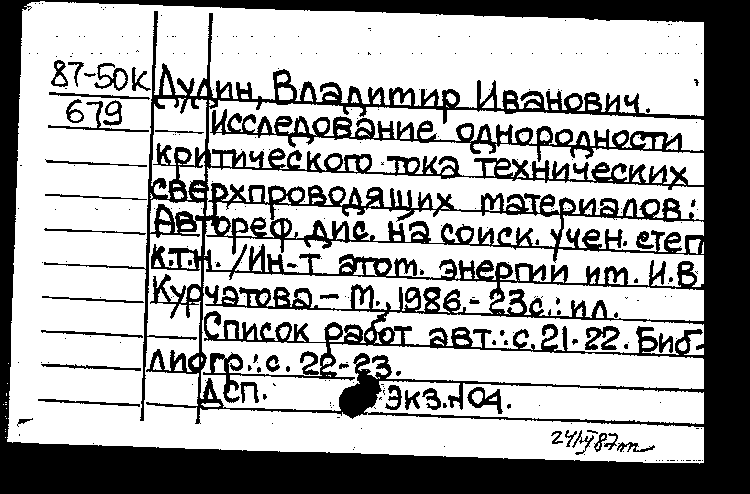 87-50К Дудин, Владимир Иванович.
679 Исследование однородности
критического тока технических
сверхпроводящих материалов:
Автореф. дис. на соиск. учен. степ
к.т.н. /Ин-т атом. энергии им. И.В.
Курчатова.- М., 1986.- 23с.: ил.
Список работ авт.: с. 21-22. Биб-
лиогр.: с. 22-23.
ДСП. Экз.N04.